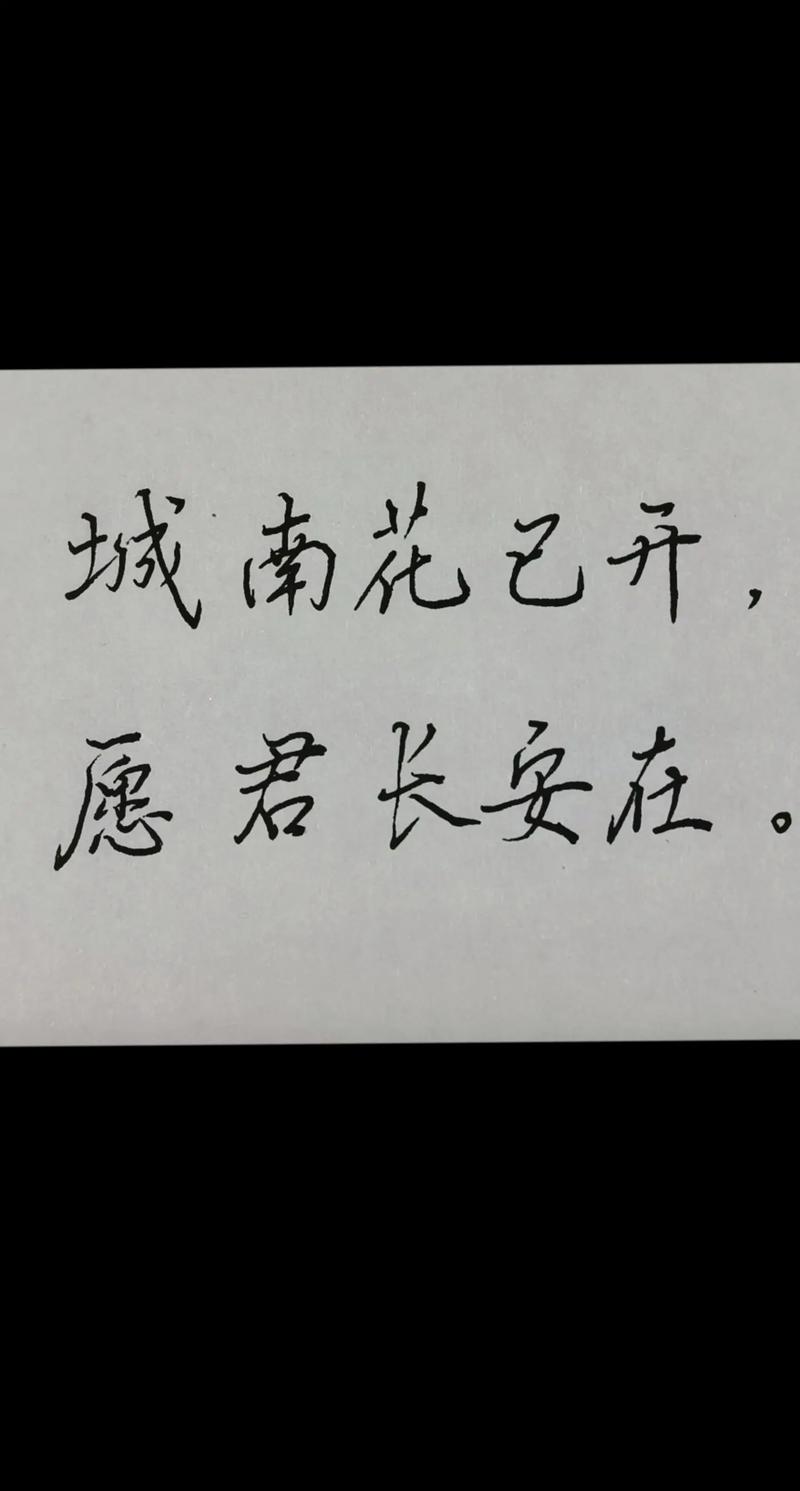 城南花已开，
愿君长安在。